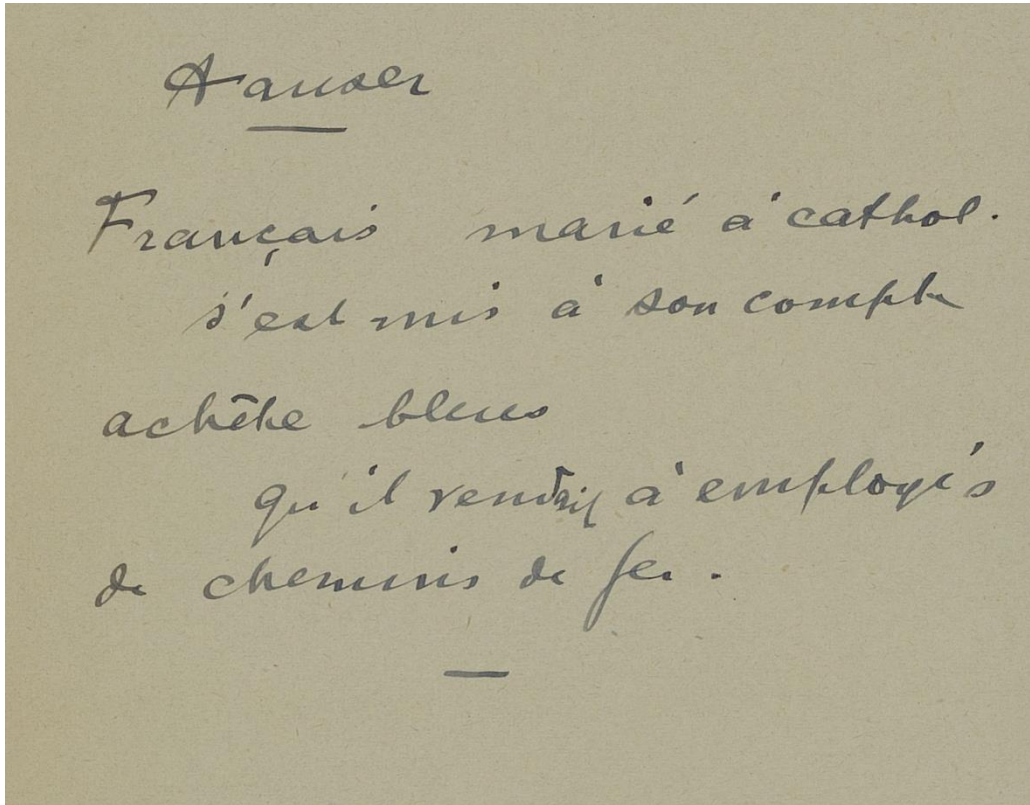 Hauser
Français marié à cathol.
s'est mis à son compte
achète bleus
qu'il vendait à employés
de chemins de fer.